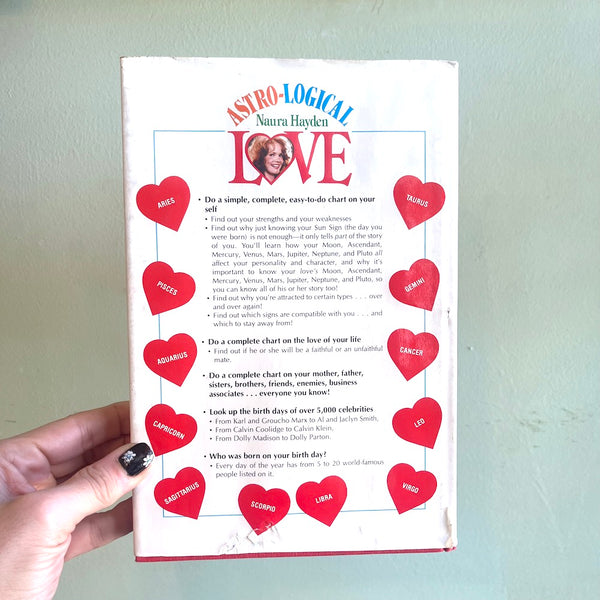 ASTRO-LOGICAL
Naura Hayden
LOVE
• Do a simple, complete, easy-to-do chart on your
self
• Find out your strengths and your weaknesses
• Find out why just knowing your Sun Sign (the day you
were born) is not enough—it only tells part of the story
of you. You'll learn how your Moon, Ascendant,
Mercury, Venus, Mars, Jupiter, Neptune, and Pluto all
affect your personality and character, and why it's
important to know your love's Moon, Ascendant,
Mercury, Venus, Mars, Jupiter, Neptune, and Pluto, so
you can know all of his or her story too!
• Find out why you're attracted to certain types . . . over
and over again!
• Find out which signs are compatible with you . . . and
which to stay away from!
• Do a complete chart on the love of your life
• Find out if he or she will be a faithful or an unfaithful
mate.
• Do a complete chart on your mother, father,
sisters, brothers, friends, enemies, business
associates . . . everyone you know!
• Look up the birth days of over 5,000 celebrities
• From Karl and Groucho Marx to Al and Jaclyn Smith,
• From Calvin Coolidge to Calvin Klein,
• From Dolly Madison to Dolly Parton.
• Who was born on your birth day?
• Every day of the year has from 5 to 20 world-famous
people listed on it.
ARIES
PISCES
AQUARIUS
CAPRICORN
SAGITTARIUS
SCORPIO
LIBRA
VIRGO
LEO
CANCER
GEMINI
TAURUS